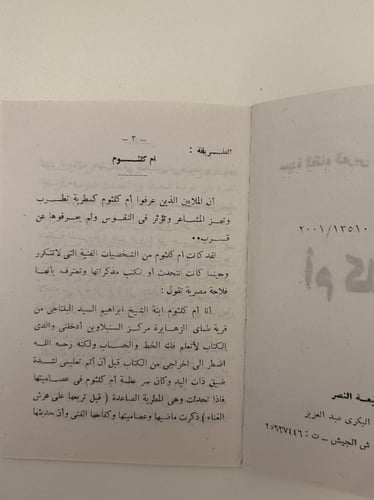 - ٣ -
الطريقة :
أم كلثوم
أن الملايين الذين عرفوا أم كلثوم كمطربة تطرب
وتهز المشاعر وتؤثر فى النفوس ولم يعرفوها عن
قرب..
لقد كانت أم كلثوم من الشخصيات الفنية التى لاتتكرر
وحينما كانت تتحدث أو تكتب مذكراتها وتعترف بأنها
فلاحة مصرية تقول :
أنا أم كلثوم ابنة الشيخ ابراهيم السيد البلتاجى من
قرية طماى الزهايرة مركز السنبلاوين أدخلنى والدى
الكتاب لأتعلم فك الخط والحساب ولكنه رحمه الله
اضطر الى اخراجى من الكتاب قبل أن أتم تعليمى لشدة
ضيق ذات اليد وكان سر عظمة أم كلثوم فى عصاميتها
فاذا تحدثت وهى المطربة الصاعدة ( قبل تربعها على عرش
الغناء ) ذكرت ماضيها وعصاميتها وكفاحها الفنى وأن حديثها
سيدة الغناء العربى
٢٠٠١/١٣٥١٠
أم كل
يعة النصر
البكرى عبد العزيز
ش الجيش - ت : ٢٥٩٣٧٤٤٦